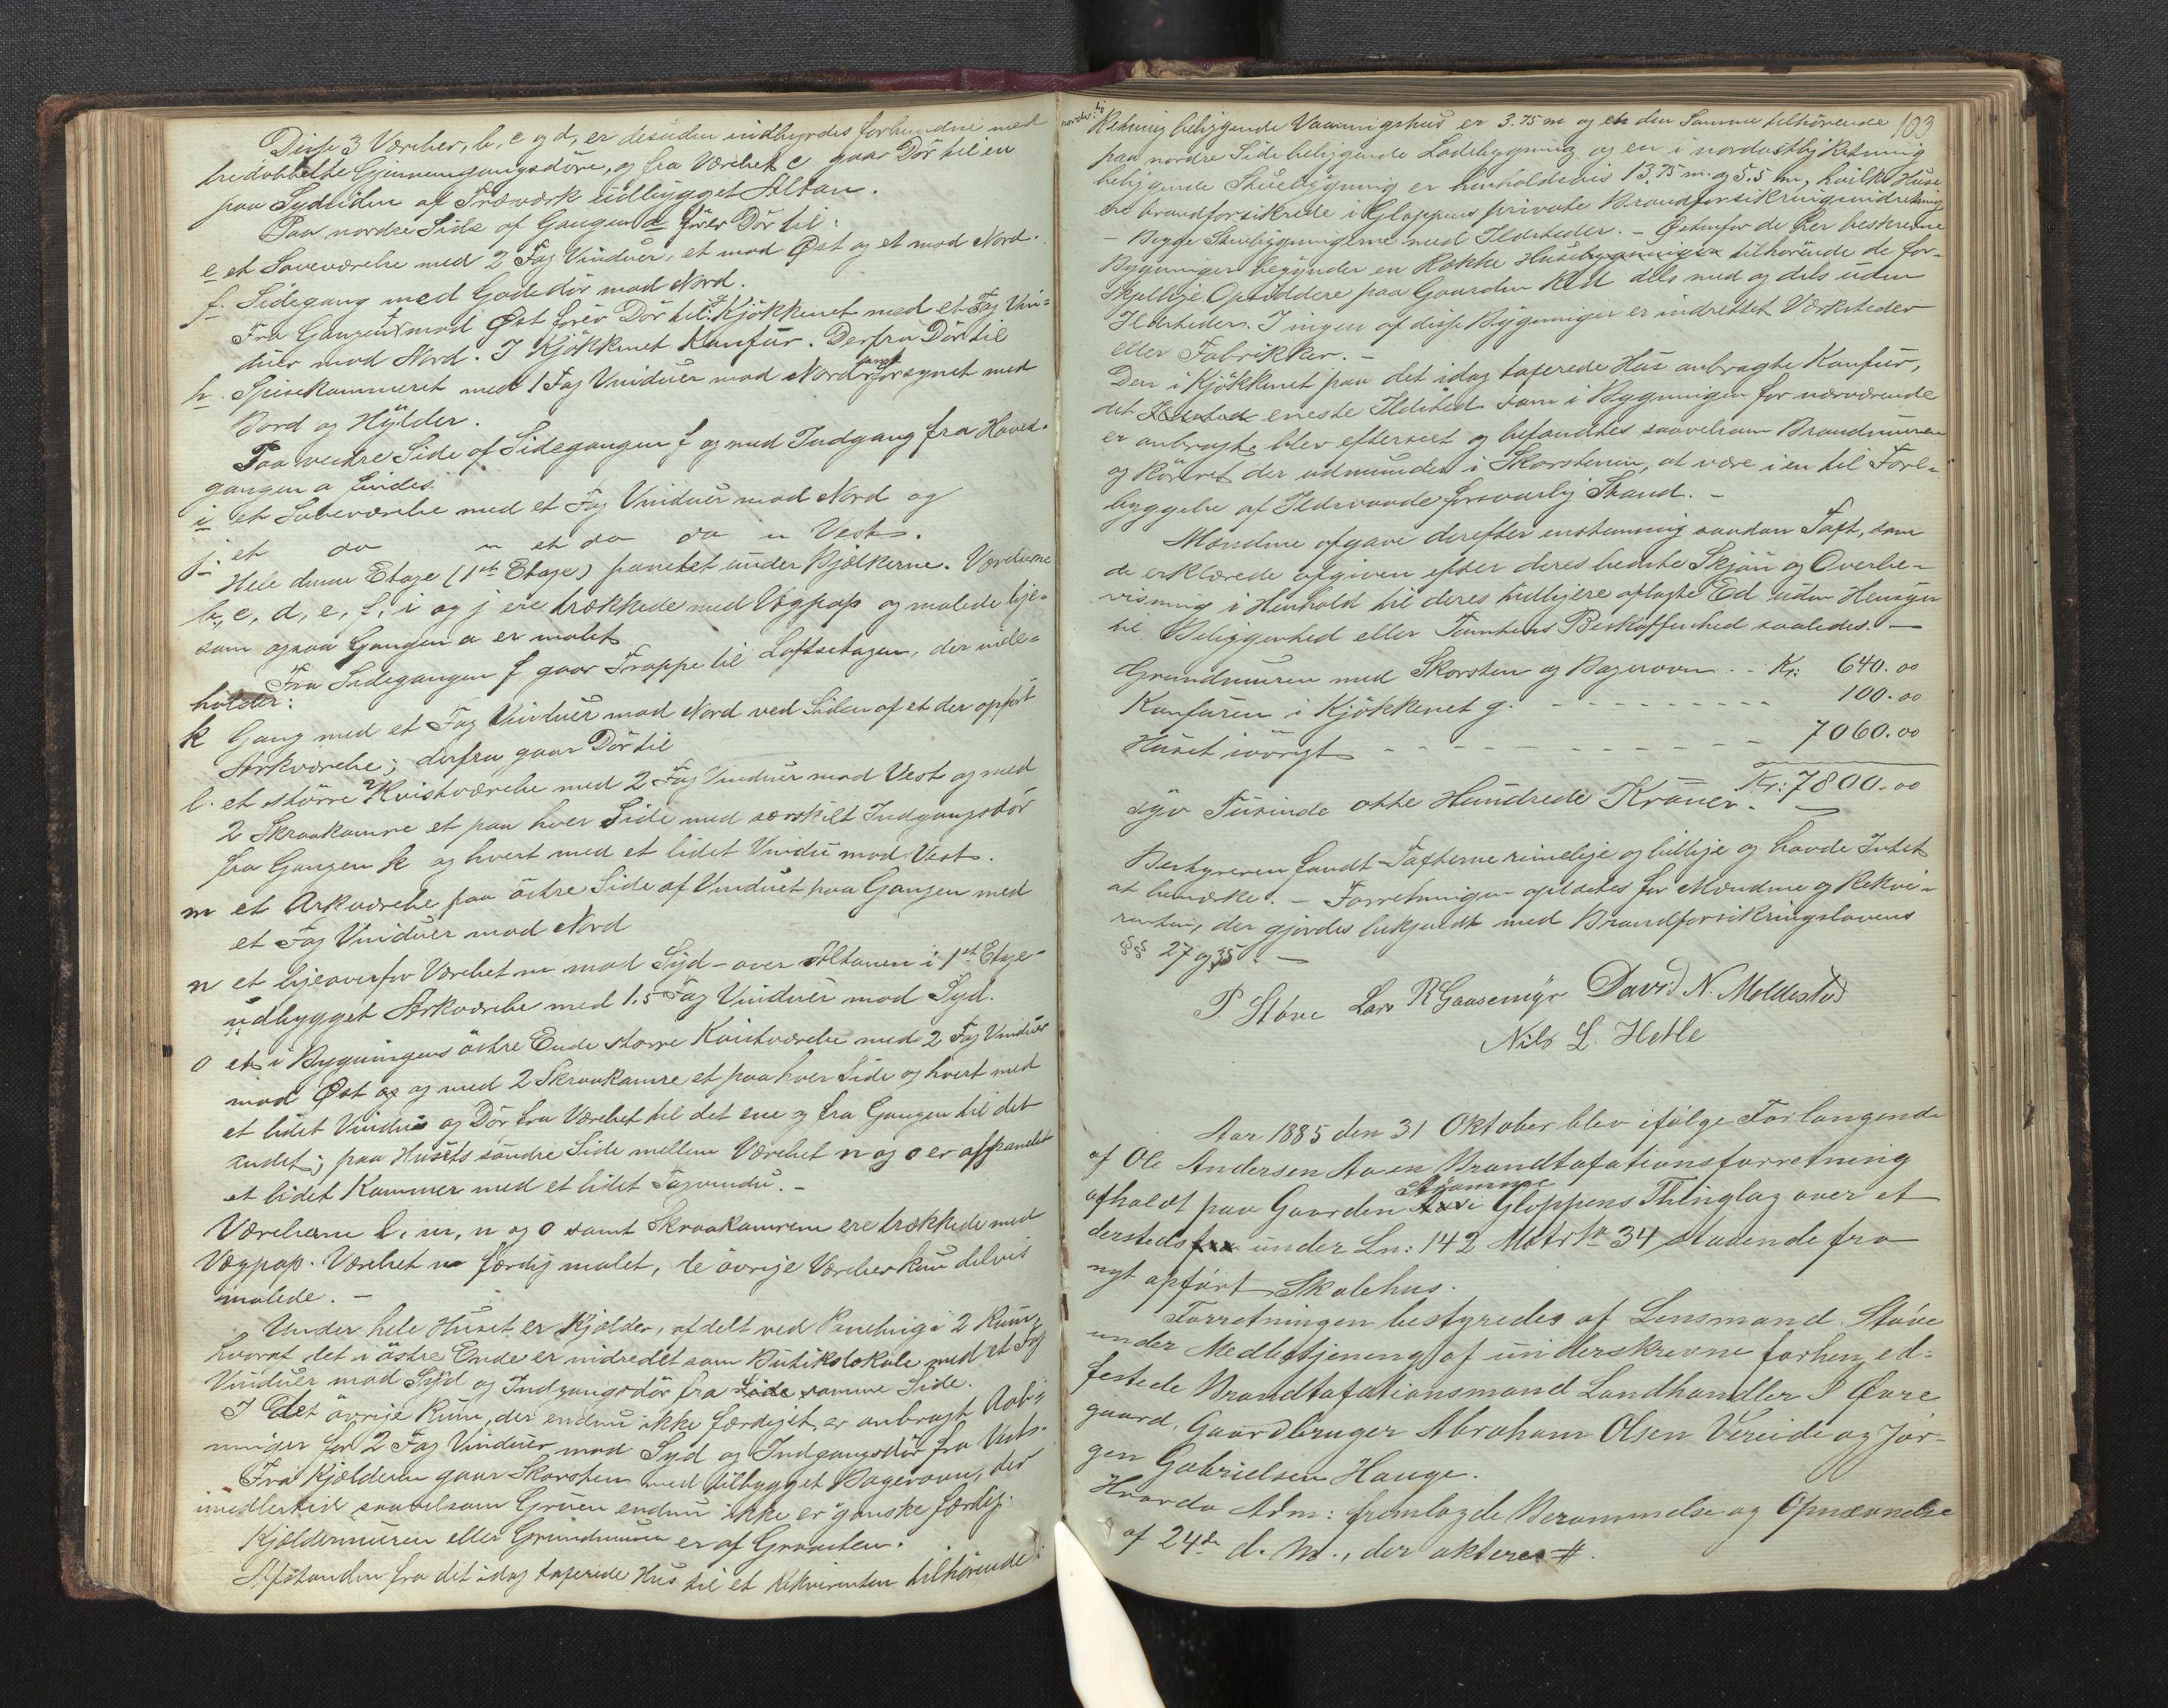 Disse 3 Værelser, b, c og d, er desuden indbyrdes forbundne med
tredobbelte Gjennemgangsdöre, og fra Værelset c gaar Dör til en
paa Sydsiden af Træværk udbygget Altan.
Paa nordre Side af Gangen a förer Dör til:
e et Soveværelse med 2 Fag Vinduer, et mod Øst og et mod Nord.
f. Sidegang med Gadedör mod Nord.
Fra Gangen f mod Øst förer Dör til: Kjökkenet med et Fag Vin-
duer mod Nord. I Kjökkenet Komfur. Derfra Dör til
h. Spisekammeret med 1 Fag Vinduer mod Nord samt forsynet med
Bord og Hylder.
Paa vestre Side af Sidegangen f og med Indgang fra Hoved-
gangen a findes
i et Soveværelse med et Fag Vinduer mod Nord og
j. et do " et do do " Vest.
Hele denne Etage (1ste Etage) panelet under Bjælkerne. Værelserne
b, c, d, e, f, i og j ere trækkede med Vægpap og malede lige-
som ogsaa Gangen a er malet
Fra Sidegangen f gaar Trappe til Loftsetagen, der inde-
holder:
k Gang med et Fag Vinduer mod Nord ved Siden af et der opfört
Arkværelse; derfra gaar Dör til
l. et större Kvistværelse med 2 Fag Vinduer mod Vest og med
2 Skraakamre et paa hver Side med særskilt Indgangsdör
fra Gangen k og hvert med et lidet Vindu mod Vest.
m et Arkværelse paa östre Side af Vinduet paa Gangen med
et Fag Vinduer mod Nord
n et ligeoverfor Værelset m mod Syd - over Altanen i 1ste Etage -
udbygget Arkværelse med 1,5 Fag Vinduer mod Syd.
o et i Bygningens östre Ende större Kvistværelse med 2 Fag Vinduer
mod Øst og og med 2 Skraakamre et paa hver Side og hvert med
et lidet Vindu og Dör fra Værelset til det ene og fra Gangen til det
andet; paa Husets söndre Side mellem Værelset n og o er afpanelet
et lidet Kammer med et lidet Tagvindu. -
Værelserne l, m, n og o samt Skraakamrene ere trækkede med
Vægpap. Værelset n færdig malet, de övrige Værelser kun delvis
malede. -
Under hele Huset er Kjælder, afdelt ved Paneling i 2 Rum,
hvoraf det i östre Ende er indredet som Butikslokale med et Fag
Vinduer mod Syd og Indgangsdör fra Side samme Side.
I det övrige Rum, der endnu ikke færdigt, er anbragt Aab-
ninger for 2 Fag Vinduer mod Syd og Indgangsdör fra Vest.
Fra Kjælderen gaar Skorsten med tilbygget Bagerovn, der
imidlertid saavelsom Gruen endnu ikke er ganske færdig.
Kjældermuren eller Grundmuren er af Graasten.
Afstanden fra det idag taxerede Hus til et Rekvirenten tilhörende i
103
nordvestlig
Retning beliggende Vaaningshus er 3.75 m og en den Samme tilhörende
paa nordre Side beliggende Ladebygning og en i nordostlig Retning
beliggende Stuebygning er henholdsvis 13,75 m. og 5.5 m, hvilke Huse
ere brandforsikrede i Gloppens private Brandforsikringsindretning
- Begge Stuebygningerne med Ildsteder. - Østenfor de her beskrevne
Bygninger begynder en Række Husebygninger tilhörende de for-
skjellige Opsiddere paa Gaarden dels med og dels uden
Ildsteder. I ingen af disse Bygninger er indrettet Værksteder
eller Fabrikker. -
Den i Kjökkenet paa det idag taxerede Hus anbragte Komfur,
det eneste Ildsted som i Bygningen for nærværende
er anbragt, blev efterseet og befandtes saavelsom Brandmuren
og Röret der udmunder i Skorstenen, at være i en til Fore-
byggelse af Ildsvaade forsvarlig Stand. -
Mændene afgave derefter enstemmig saadan Taxt, som
de erklærede afgiven efter deres bedste Skjön og Overbe-
visning i Henhold til deres tidligere aflagte Ed uden Hensyn
til Beliggenhed eller Tomtens Beskaffenhed saaledes. -
Grundmuren med Skorsten og Bagerovn - - Kr: 640.00
Komfuren i Kjökkenet g. - - - - - - - - - 100.00
Huset iövrigt - - - - - - - - - - - 7060.00
Kr: 7800.00
syv Tusinde otte Hundrede Kroner.
Bestyreren fandt Taxterne rimelige og billige og havde Intet
at bemærke. - Forretningen oplæstes for Mændene og Rekvi-
renten, der gjordes bekjendt med Brandforsikringslovens
§§ 27 og 35. -
P. Stöve Lars R Gaasemyr David N. Moldestad
Nils L. Hetle
Aar 1885 den 31 Oktober blev ifölge Forlangende
af Ole Andersen Aa en Brandtaxationsforretning
afholdt paa Gaarden i Gloppens Thinglag over et
dersteds under Ln: 142 Matr № 34 staaende fra
nyt opfört Skolehus.
Forretningen bestyredes af Lensmand Stöve
under Medbetjening af underskrevne forhen ed-
festede Brandtaxationsmænd Landhandler I Øvre
gaard, Gaardbruger Abraham Olsen Vereide og Jör-
gen Gabrielsen Hauge.
Hvorda Adm: fremlagde Berammelse og Opnævnelse
af 24de d. M., der akteres #.